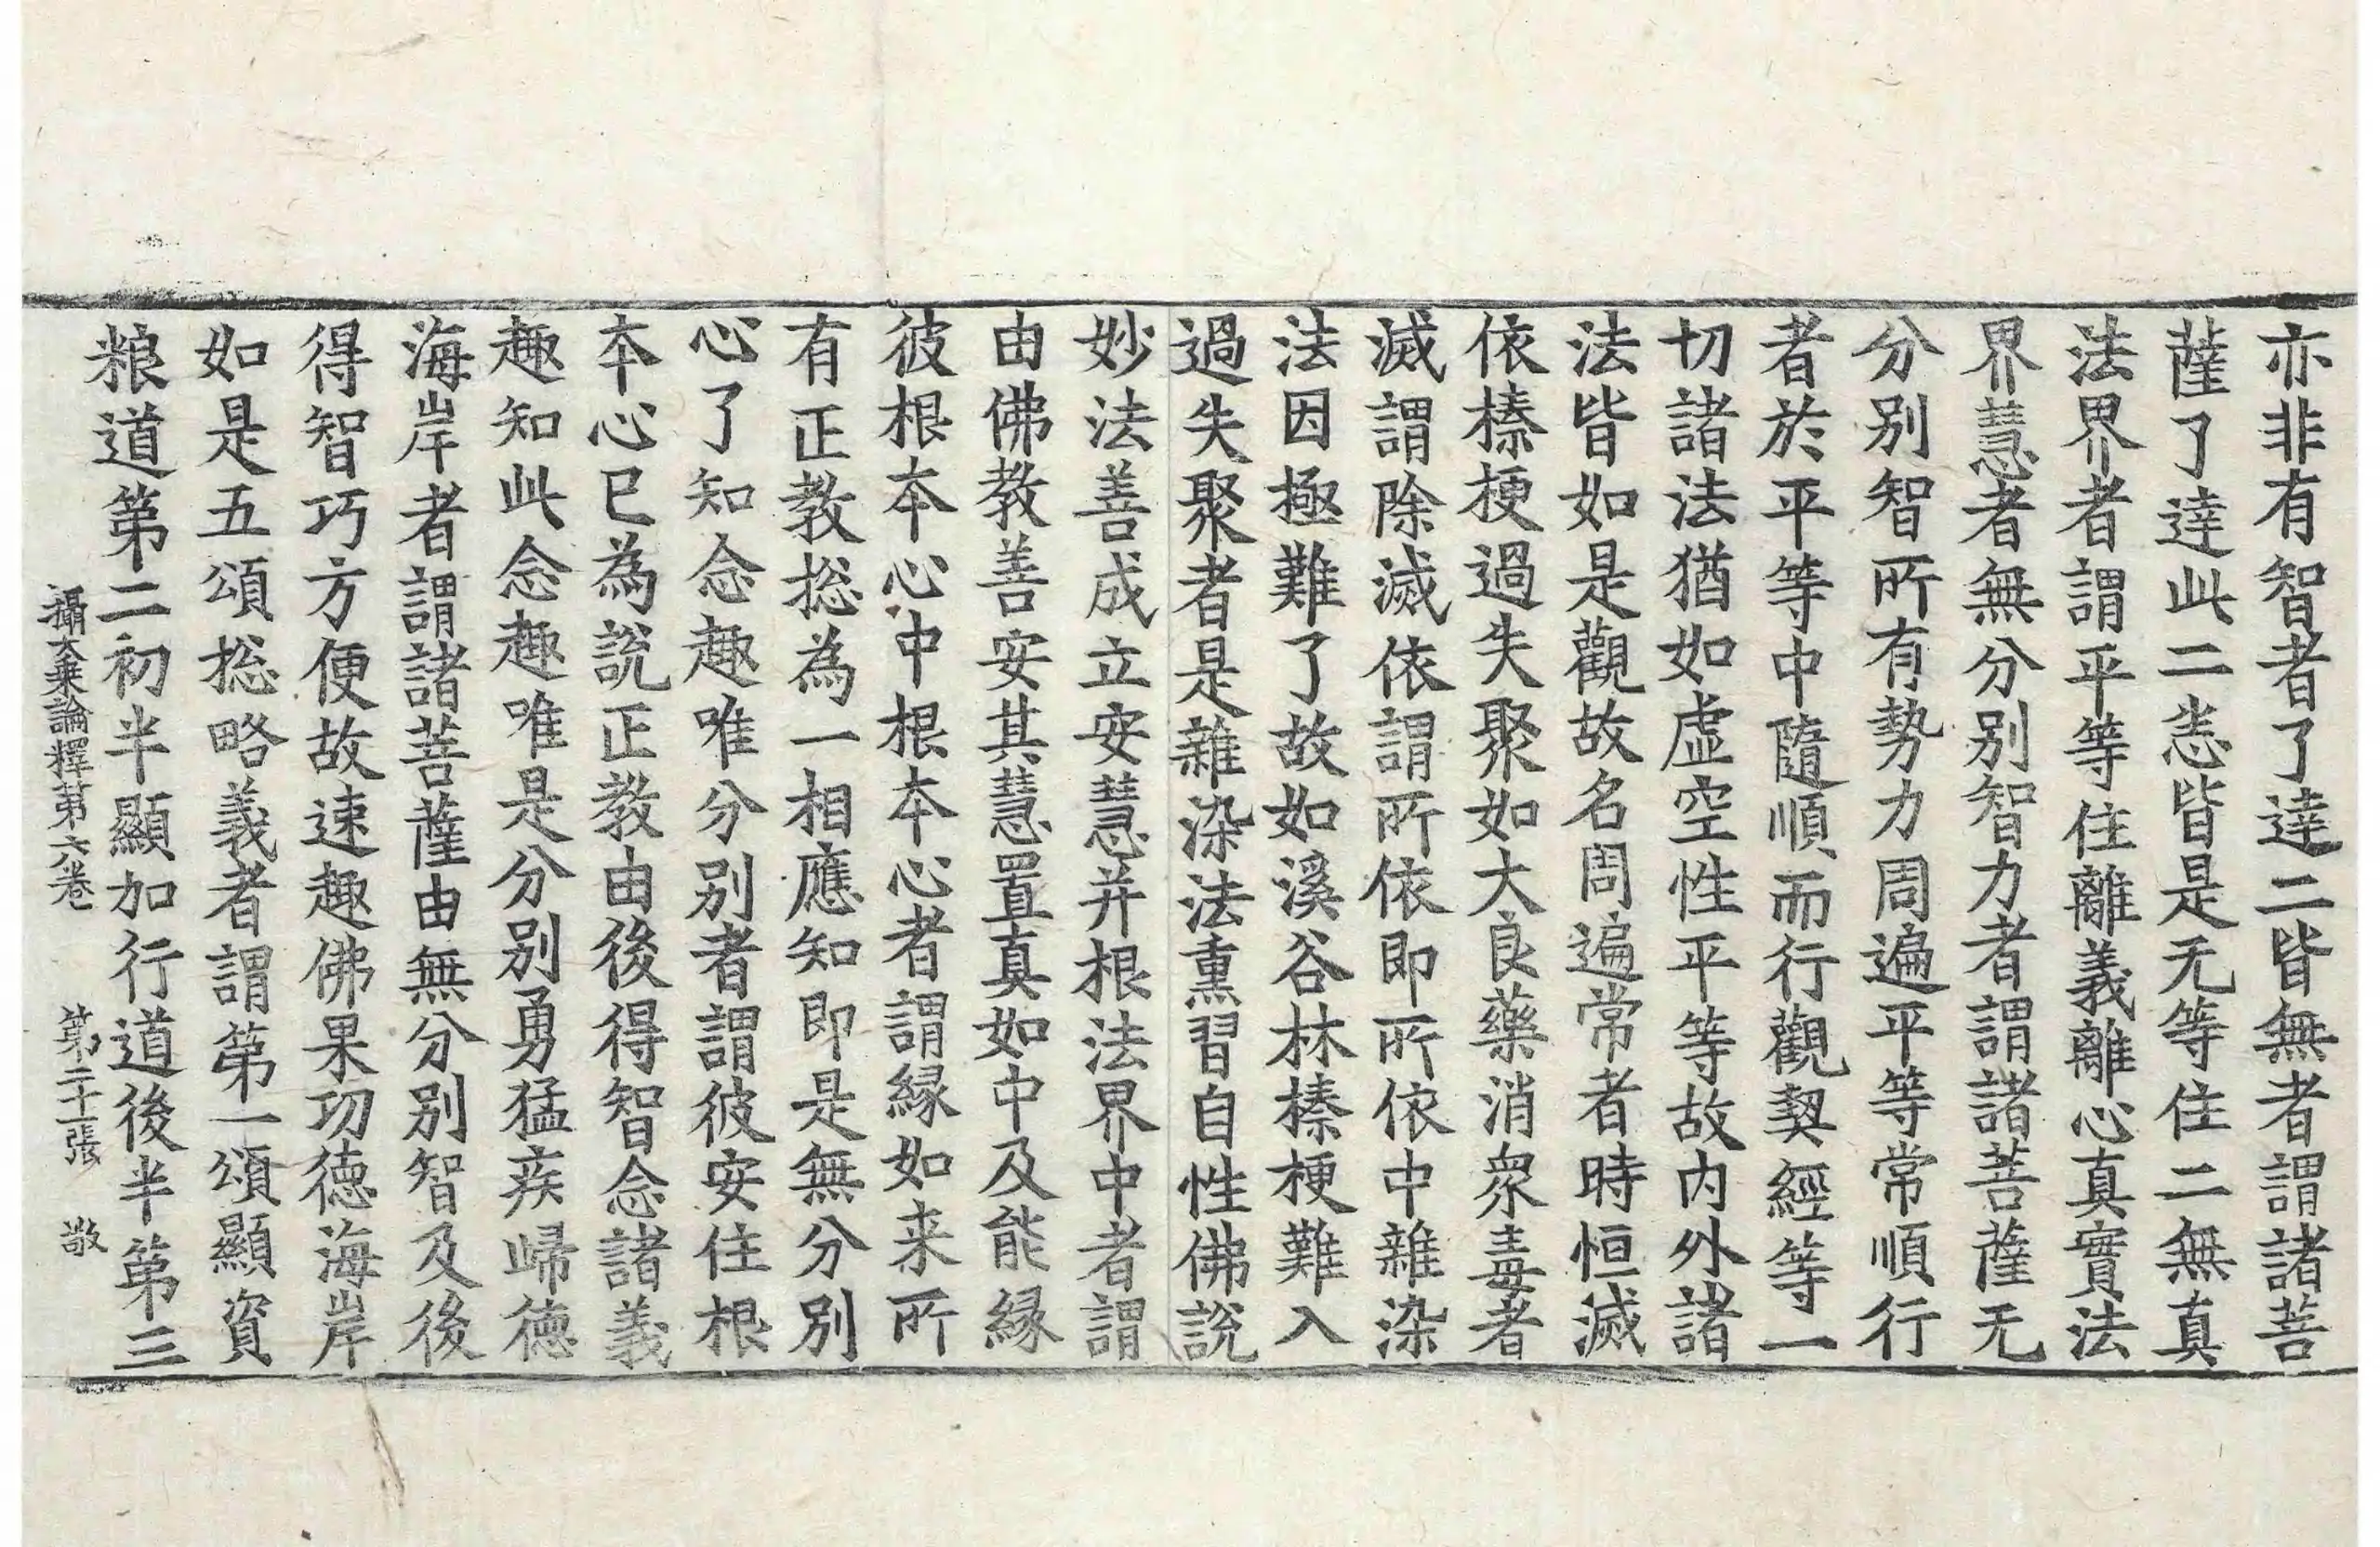 亦非有智者了達二皆無者謂諸菩
薩了達此二悉皆是无等住二無真
法界者謂平等住離義離心真實法
界慧者無分別智力者謂諸菩薩无
分別智所有勢力周遍平等常順行
者於平等中隨順而行觀契經等一
切諸法猶如虛空性平等故内外諸
法皆如是觀故名周遍常者時恒滅
依榛梗過失聚如大良藥消衆毒者
滅謂除滅依謂所依即所依中雜染
法因極難了故如溪谷林榛梗難入
過失聚者是雜染法熏習自性佛說
妙法善成立安慧并根法界中者謂
由佛教善安其慧置真如中及能縁
彼根本心中根本心者謂縁如来所
有正教揔為一相應知即是無分別
心了知念趣唯分別者謂彼安住根
本心已為說正教由後得智念諸義
趣知此念趣唯是分別勇猛疾歸德
海岸者謂諸菩薩由無分別智及後
得智巧方便故速趣佛果功德海岸
如是五頌揔略義者謂第一頌顯資
粮道第二初半顯加行道後半第三
攝大乗論釋第六卷 第二十一張 敬